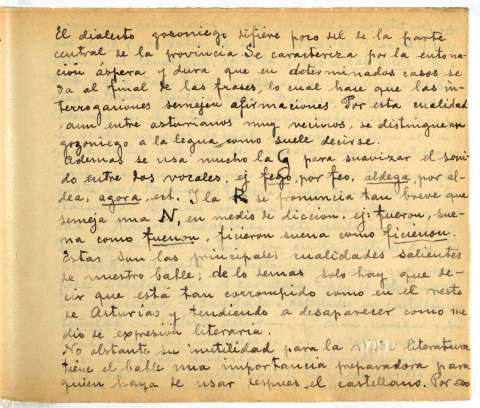 El dialecto gozoniego difiere poco del de la parte
central de la provincia Se caracteriza por la entona-
ción áspera y dura que en determinados casos se
da al final de las frases, lo cual hace que las in-
terrogaciones semejen afirmaciones. Por esta cualidad
, aun entre asturianos muy vecinos, se distingue un
gozoniego a la legua, como suele decirse.
Ademas se usa mucho la G para suavizar el soni-
do entre dos vocales, ej fego, por feo, aldega, por al-
dea, agora, ect. Y la R se pronuncia tan breve que
semeja una N, en medio de diccion. ej: fueron, sue-
na como fuenon, ficieron suena como ficienon.
Estas son las principales cualidades salientes
de nuestro bable; de lo demas solo hay que de-
cir que está tan corrompido como en el resto
de Asturias y tendiendo a desaparecer como me
dio de expresión literaria.
No obstante su inutilidad para la literatura
tiene el bable una importancia preparadora para
quien haya de usar despues el castellano. Por eso